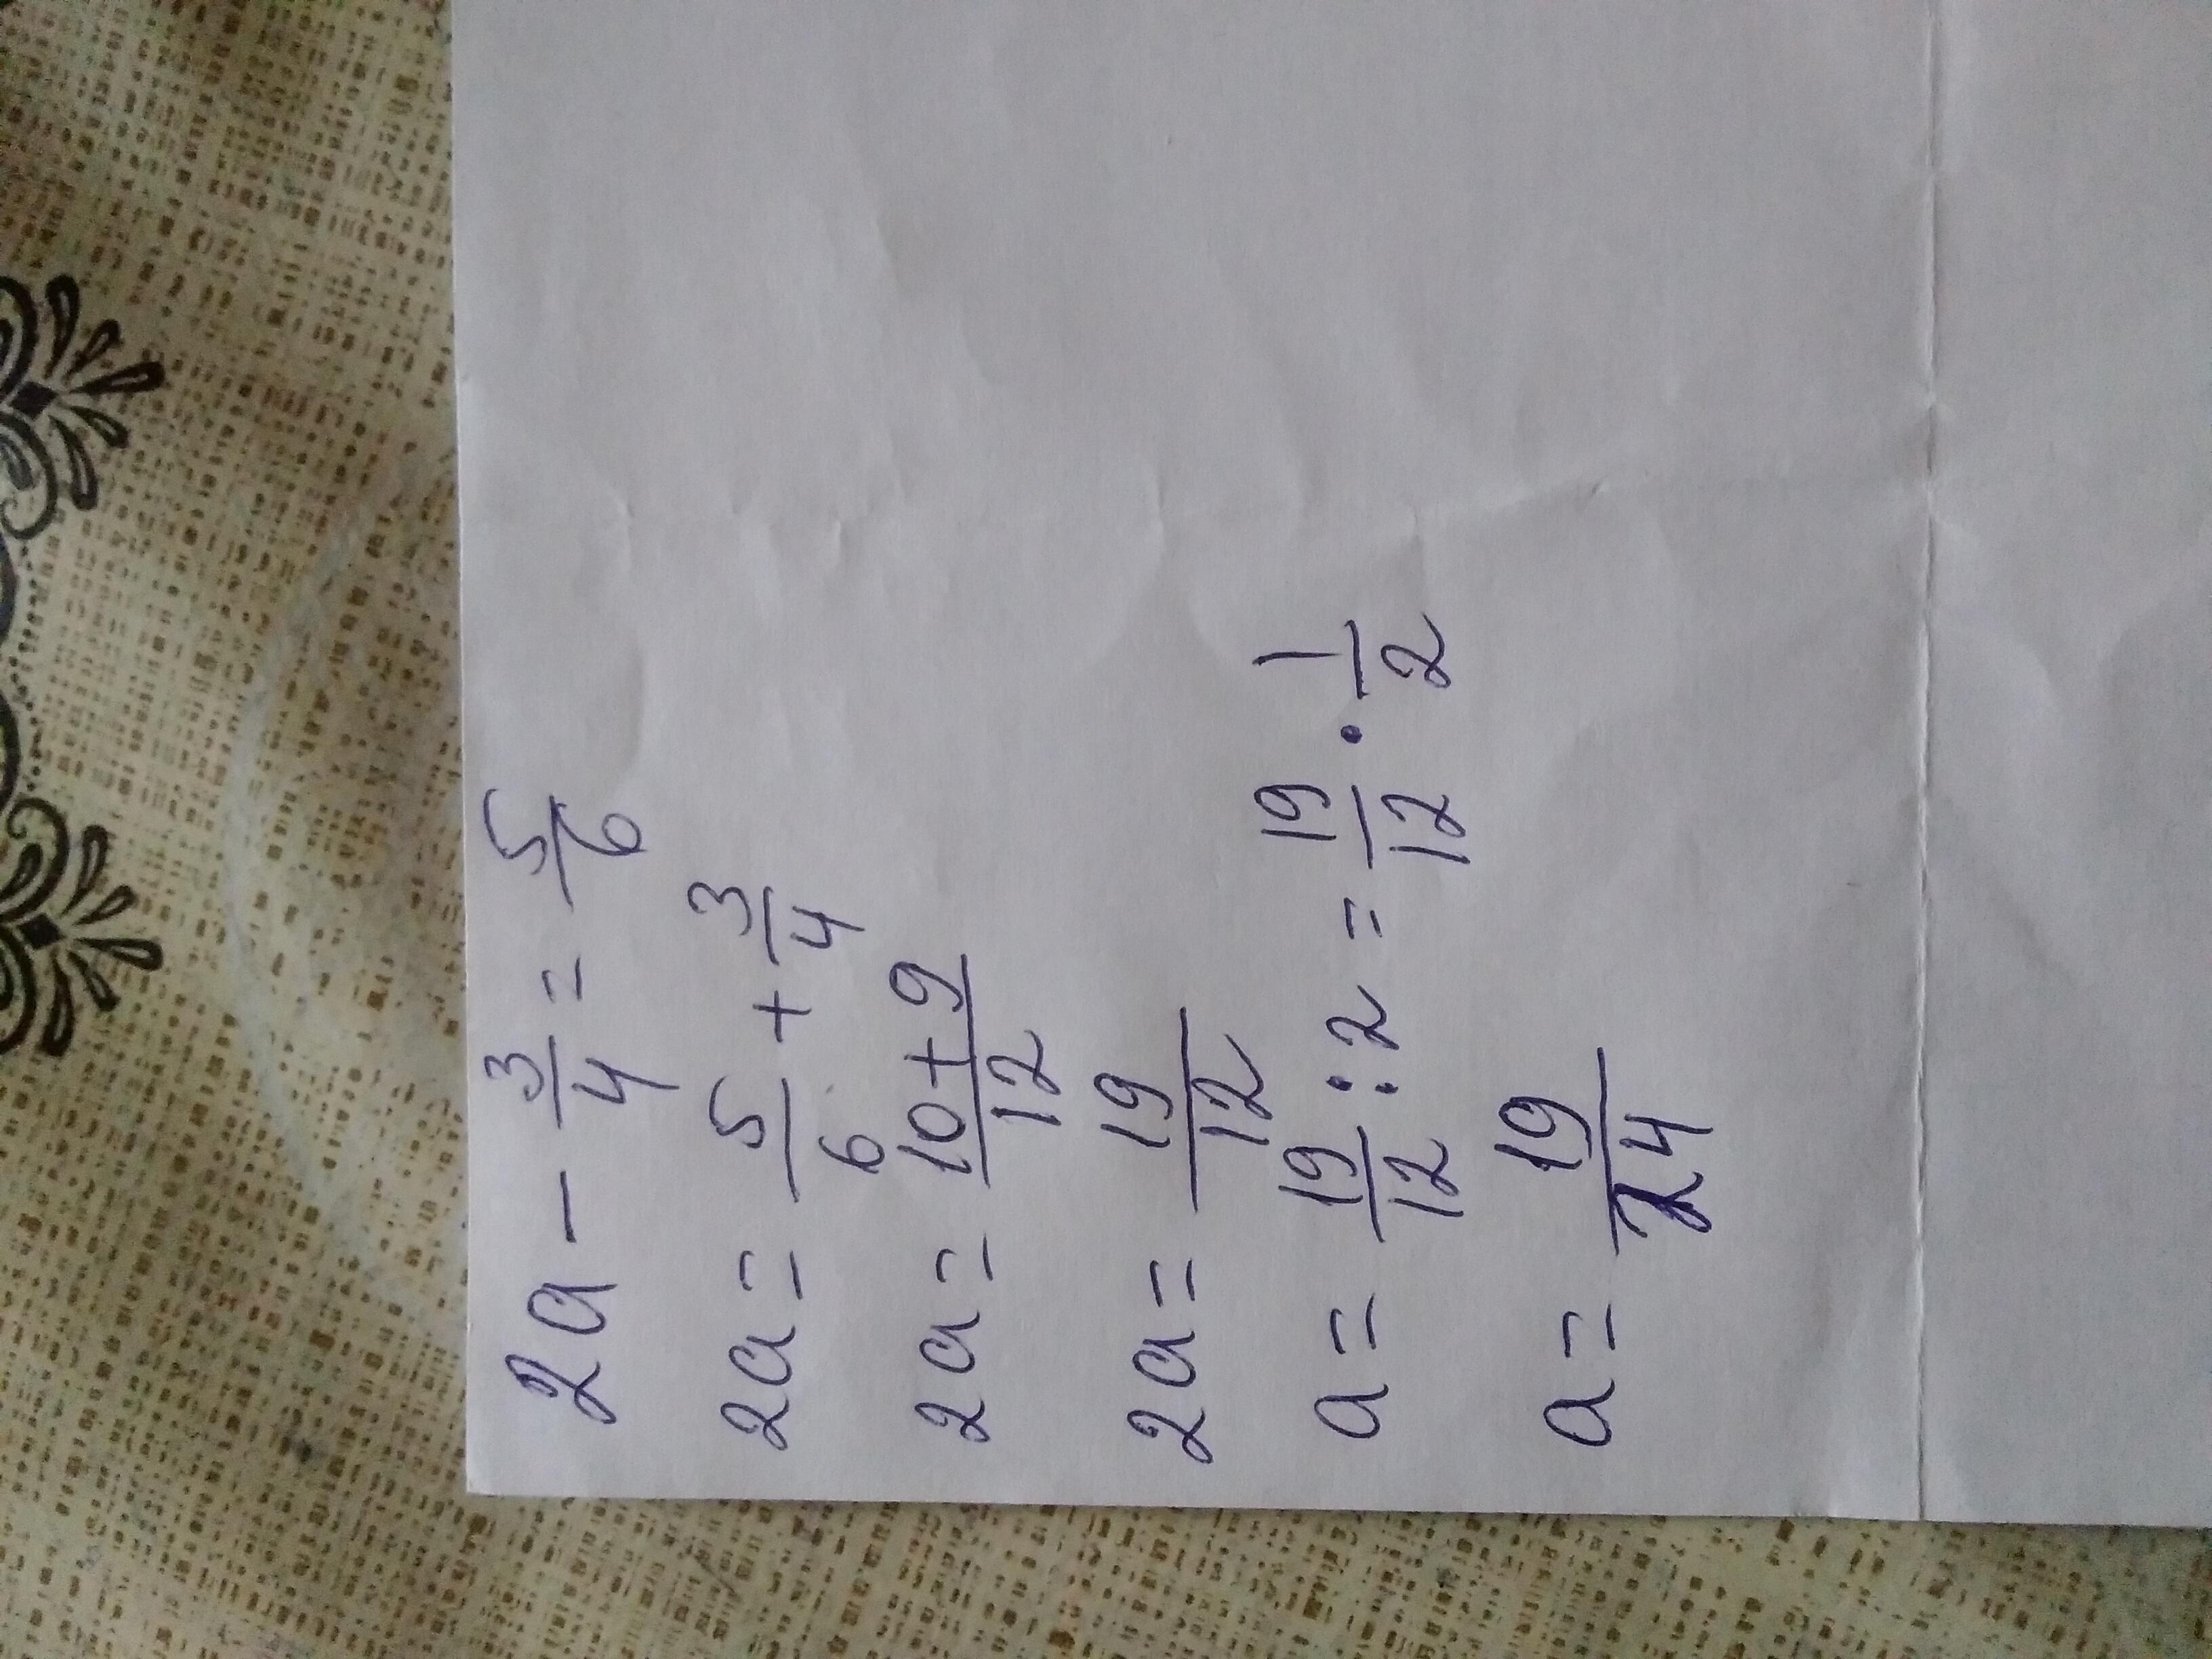 2a - 3/4 = 5/6
2a = 5/6 + 3/4
2a = 10+9/12
2a = 19/12
a = 19/12 : 2 = 19/12 · 1/2
a = 19/24